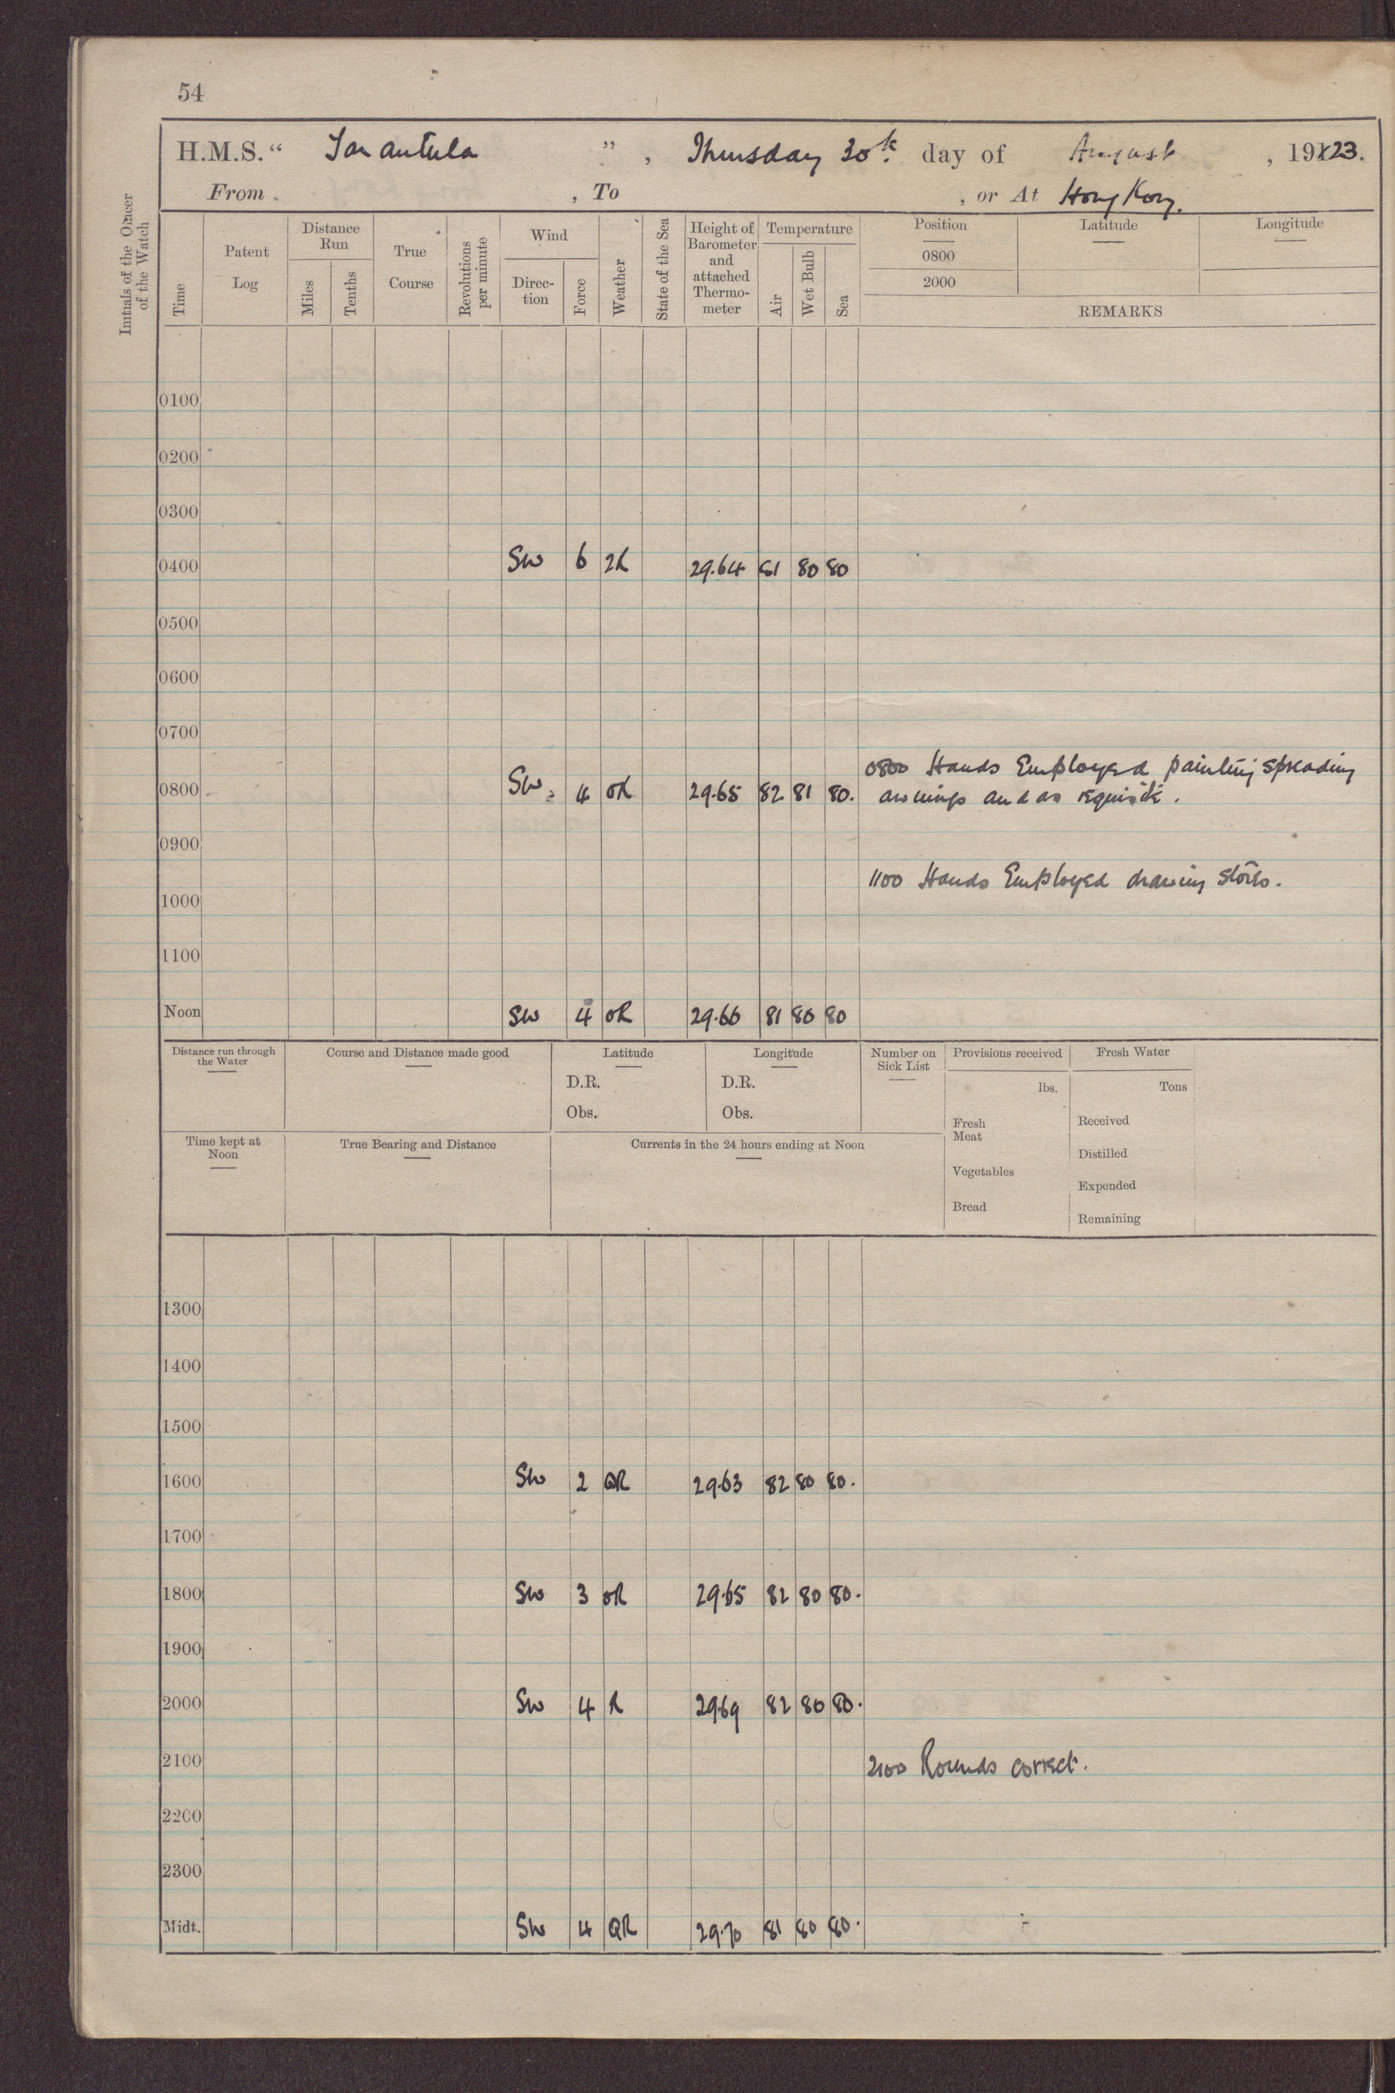 54
H.M.S. “ Tarantula ” , Thursday 30th day of August , 1923.
From , To , or At Hong Kong.
Initials of the Officer of the Watch
Time
Patent Log
Distance Run
Miles
Tenths
True Course
Revolutions per minute
Wind
Direc-tion
Force
Weather
State of the Sea
Height of Barometer and attached Thermo-meter
Temperature
Air
Wet Bulb
Sea
Position
0800
2000
Latitude
Longitude
REMARKS
0100
0200
0300
0400 SW 6 29.64 81 80 80
0500
0600
0700
0800 Hands Employed painting spreading
0800 SW 4 oR 29.65 82 81 80. awnings and as requisite.
0900
1100 Hands Employed drawing stores.
1000
1100
Noon SW 4 oR 29.66 81 80 80
Distance run through the Water
Course and Distance made good
Latitude
D.R.
Obs.
Longitude
D.R.
Obs.
Number on Sick List
Provisions received
lbs.
Fresh Meat
Vegetables
Bread
Fresh Water
Tons
Received
Distilled
Expended
Remaining
Time kept at Noon
True Bearing and Distance
Currents in the 24 hours ending at Noon
1300
1400
1500
1600 SW 2 QR 29.63 82 80 80.
1700
1800 SW 3 oR 29.65 82 80 80.
1900
2000 SW 4 R 29.69 82 80 80.
2100 2100 Rounds correct.
2200
2300
Midt. SW 4 QR 29.70 81 80 80.